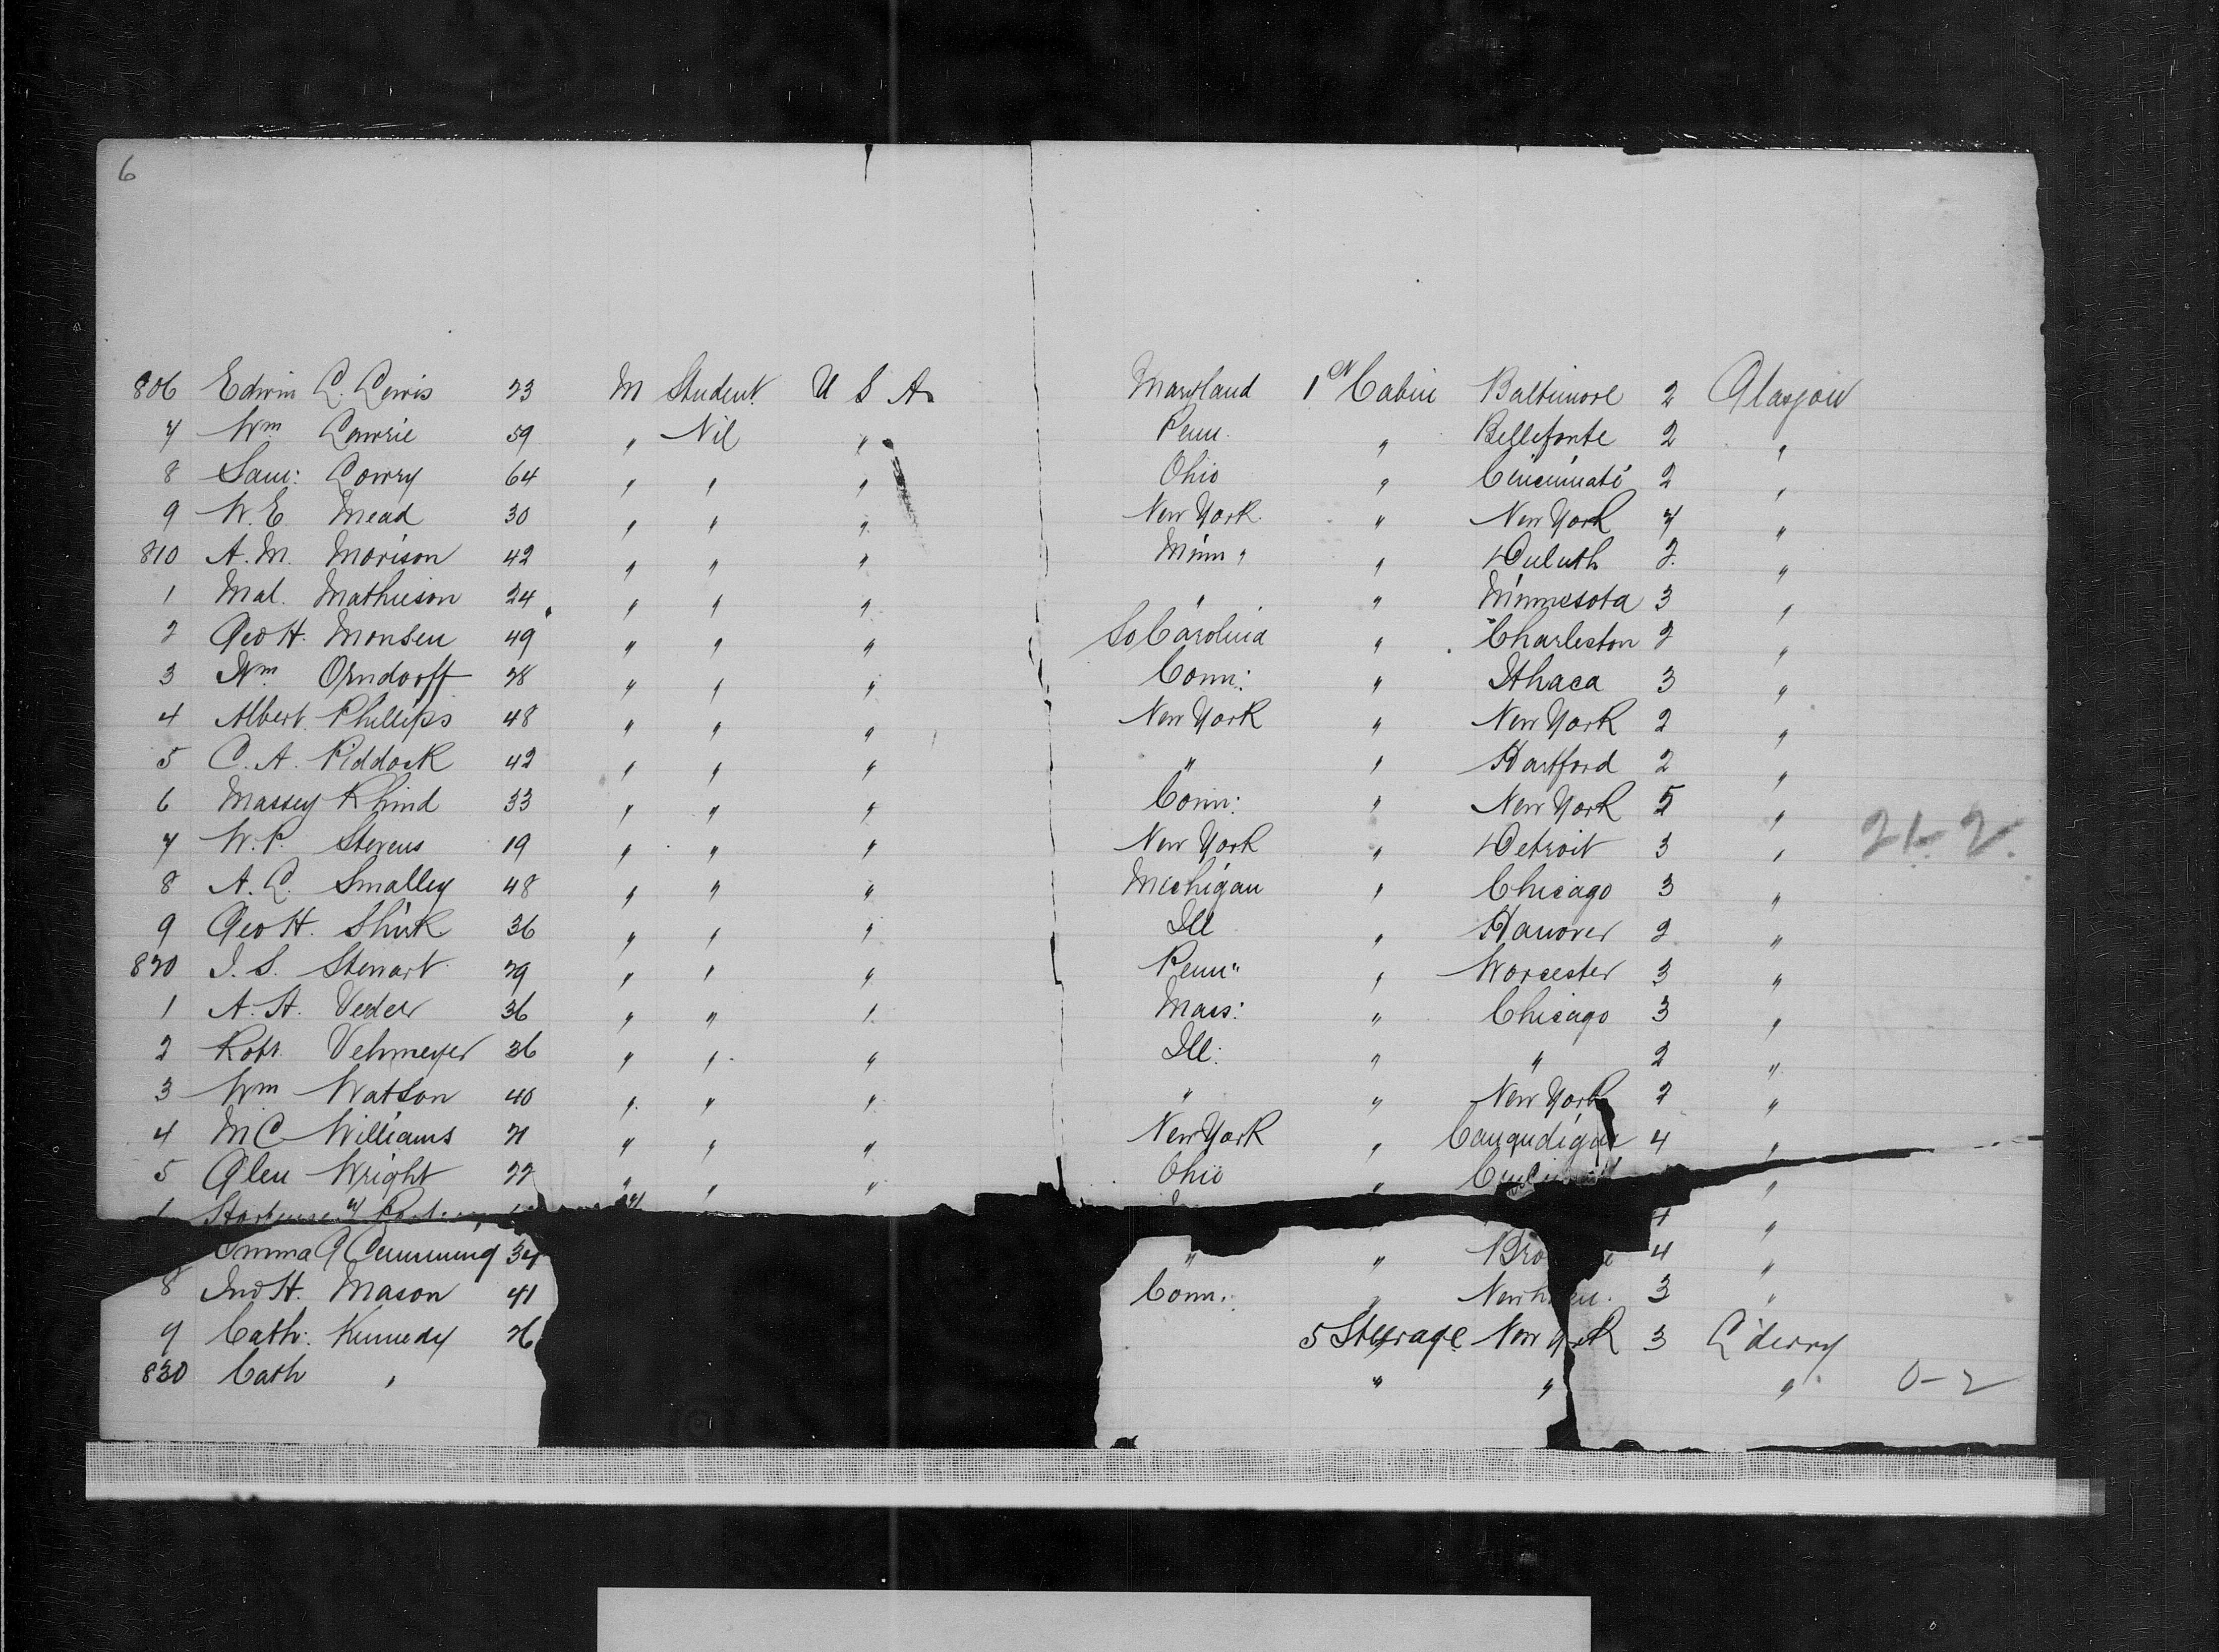 6
806 Edwin L. Lewis 23 M Student U S A Maryland 1st Cabin Baltimore 2 Glasgow
7 Wm Lowrie 59 " Nil " Penn. " Bellefonte 2 "
8 Sam: Lowry 64 " " " Ohio " Cincinnati 2 "
9 W.E. Mead 30 " " " New York. " New York 7 "
810 A.M. Morison 42 " " " Minn " " Duluth 2. "
1 Mal. Mathieson 24 " " " " " Minnesota 3 "
2 Geo H. Monsen 49 " " " So Carolina " Charleston 2 "
3 Wm Orndorff 28 " " " Conn: " Ithaca 3 "
4 Albert Phillips 48 " " " New York " New York 2 "
5 C.A. Piddock 42 " " " " " Hartford 2 "
6 Massey Rhind 33 " " " Conn: " New York 5 "
7 W.P. Stevens 19 " " " New York " Detroit 3 " 21-2
8 A.C. Smalley 48 " " " Michigan " Chicago 3 "
9 Geo H. Shirk 36 " " " Ill " Hanover 2 "
820 J.S. Stewart 29 " " " Penn " Worcester 3 "
1 A.H. Veeder 36 " " " Mass: " Chicago 3 "
2 Robt. Vehmeyer 36 " " " Ill: " " 2 "
3 Wm Watson 40 " " " " " New York 2 "
4 M C Williams 21 " " " New York " 4 "
5 Glen Wright 22 " " " Ohio " "
4 "
Emma G Cumming 34 " " 4 "
8 Jno H. Mason 41 Conn. " 3 "
9 Cath: Kennedy 26 5 Steerage New York 3 L'derry
830 Cath " " " " 0-2